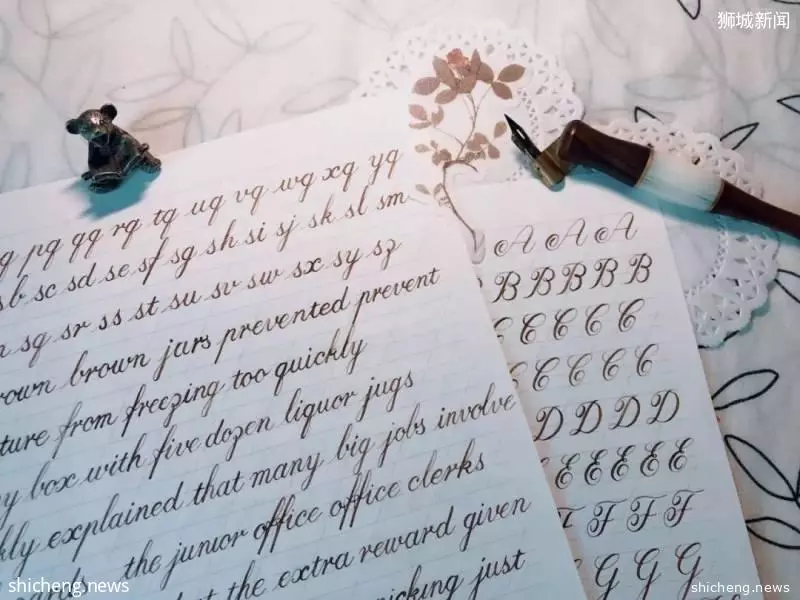 狮城新闻
pg qg rg tg ug vg wg xg yg
sb sc sd se sf sg sh si sj sk sl sm
sq sr ss st su sv sw sx sy sz
brown jars prevented prevent
from freezing too quickly
box with five dozen liquor jugs
explained that many big jobs involve
the junior office office clerks
the extra reward given
just
A A A
B B B B B
C C C C C
C C C C C
D D D D
E E E E E
F F F
G G G
shicheng.news
shicheng.news